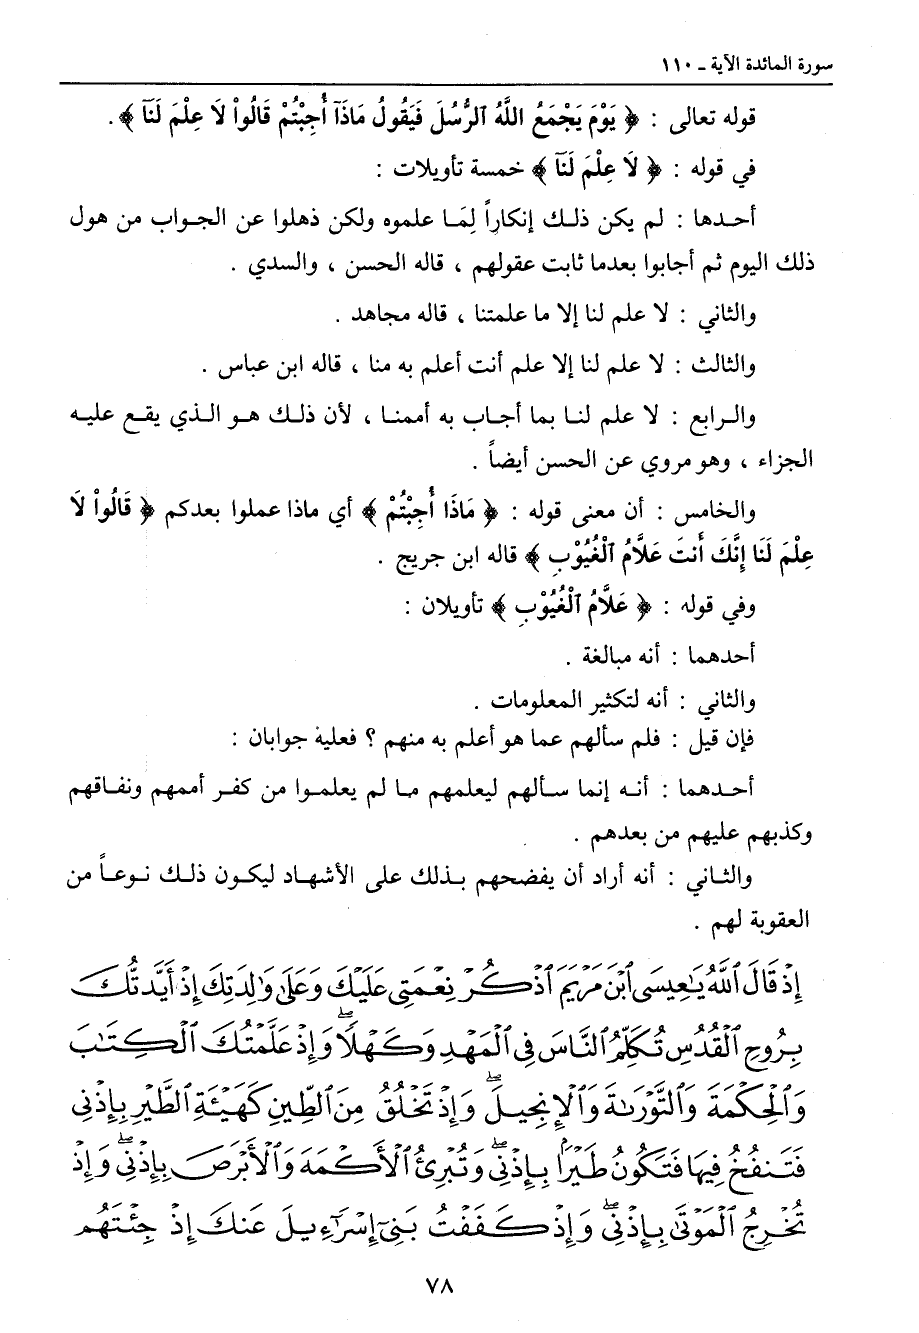 سورة المائدة الآية ـ ١١٠
قوله تعالى : ﴿ يَوْمَ يَجْمَعُ اللَّهُ ٱلرُّسُلَ فَيَقُولُ مَاذَآ أُجِبْتُمْ قَالُواْ لَا عِلْمَ لَنَآ ﴾ .
في قوله : ﴿ لَا عِلْمَ لَنَآ ﴾ خمسة تأويلات :
أحدها : لم يكن ذلك إنكاراً لِمَا علموه ولكن ذهلوا عن الجواب من هول
ذلك اليوم ثم أجابوا بعدما ثابت عقولهم ، قاله الحسن ، والسدي .
والثاني : لا علم لنا إلا ما علمتنا ، قاله مجاهد .
والثالث : لا علم لنا إلا علم أنت أعلم به منا ، قاله ابن عباس .
والرابع : لا علم لنا بما أجاب به أممنا ، لأن ذلك هو الذي يقع عليه
الجزاء ، وهو مروي عن الحسن أيضاً .
والخامس : أن معنى قوله : ﴿ مَاذَا أُجِبْتُمْ ﴾ أي ماذا عملوا بعدكم ﴿ قَالُواْ لَا
عِلْمَ لَنَا إِنَّكَ أَنتَ عَلَّامُ ٱلْغُيُوْبِ ﴾ قاله ابن جريج .
وفي قوله : ﴿ عَلَّامُ ٱلْغُيُوْبِ ﴾ تأويلان :
أحدهما : أنه مبالغة .
والثاني : أنه لتكثير المعلومات .
فإن قيل : فلم سألهم عما هو أعلم به منهم ؟ فعليه جوابان :
أحدهما : أنه إنما سألهم ليعلمهم ما لم يعلموا من كفر أممهم ونفاقهم
وكذبهم عليهم من بعدهم .
والثاني : أنه أراد أن يفضحهم بذلك على الأشهاد ليكون ذلك نوعاً من
العقوبة لهم .
إِذْ قَالَ ٱللَّهُ يَـٰعِيسَى ٱبْنَ مَرْيَمَ ٱذْكُرْ نِعْمَتِى عَلَيْكَ وَعَلَىٰ وَٰلِدَتِكَ إِذْ أَيَّدتُّكَ
بِرُوحِ ٱلْقُدُسِ تُكَلِّمُ ٱلنَّاسَ فِى ٱلْمَهْدِ وَكَهْلًاۖ وَإِذْ عَلَّمْتُكَ ٱلْكِتَـٰبَ
وَٱلْحِكْمَةَ وَٱلتَّوْرَىٰةَ وَٱلْإِنجِيلَۖ وَإِذْ تَخْلُقُ مِنَ ٱلطِّينِ كَهَيْـَٔةِ ٱلطَّيْرِ بِإِذْنِى
فَتَنفُخُ فِيهَا فَتَكُونُ طَيْرًۢا بِإِذْنِىۖ وَتُبْرِئُ ٱلْأَكْمَهَ وَٱلْأَبْرَصَ بِإِذْنِىۖ وَإِذْ
تُخْرِجُ ٱلْمَوْتَىٰ بِإِذْنِىۖ وَإِذْ كَفَفْتُ بَنِىٓ إِسْرَٰٓءِيلَ عَنكَ إِذْ جِئْتَهُم
٧٨